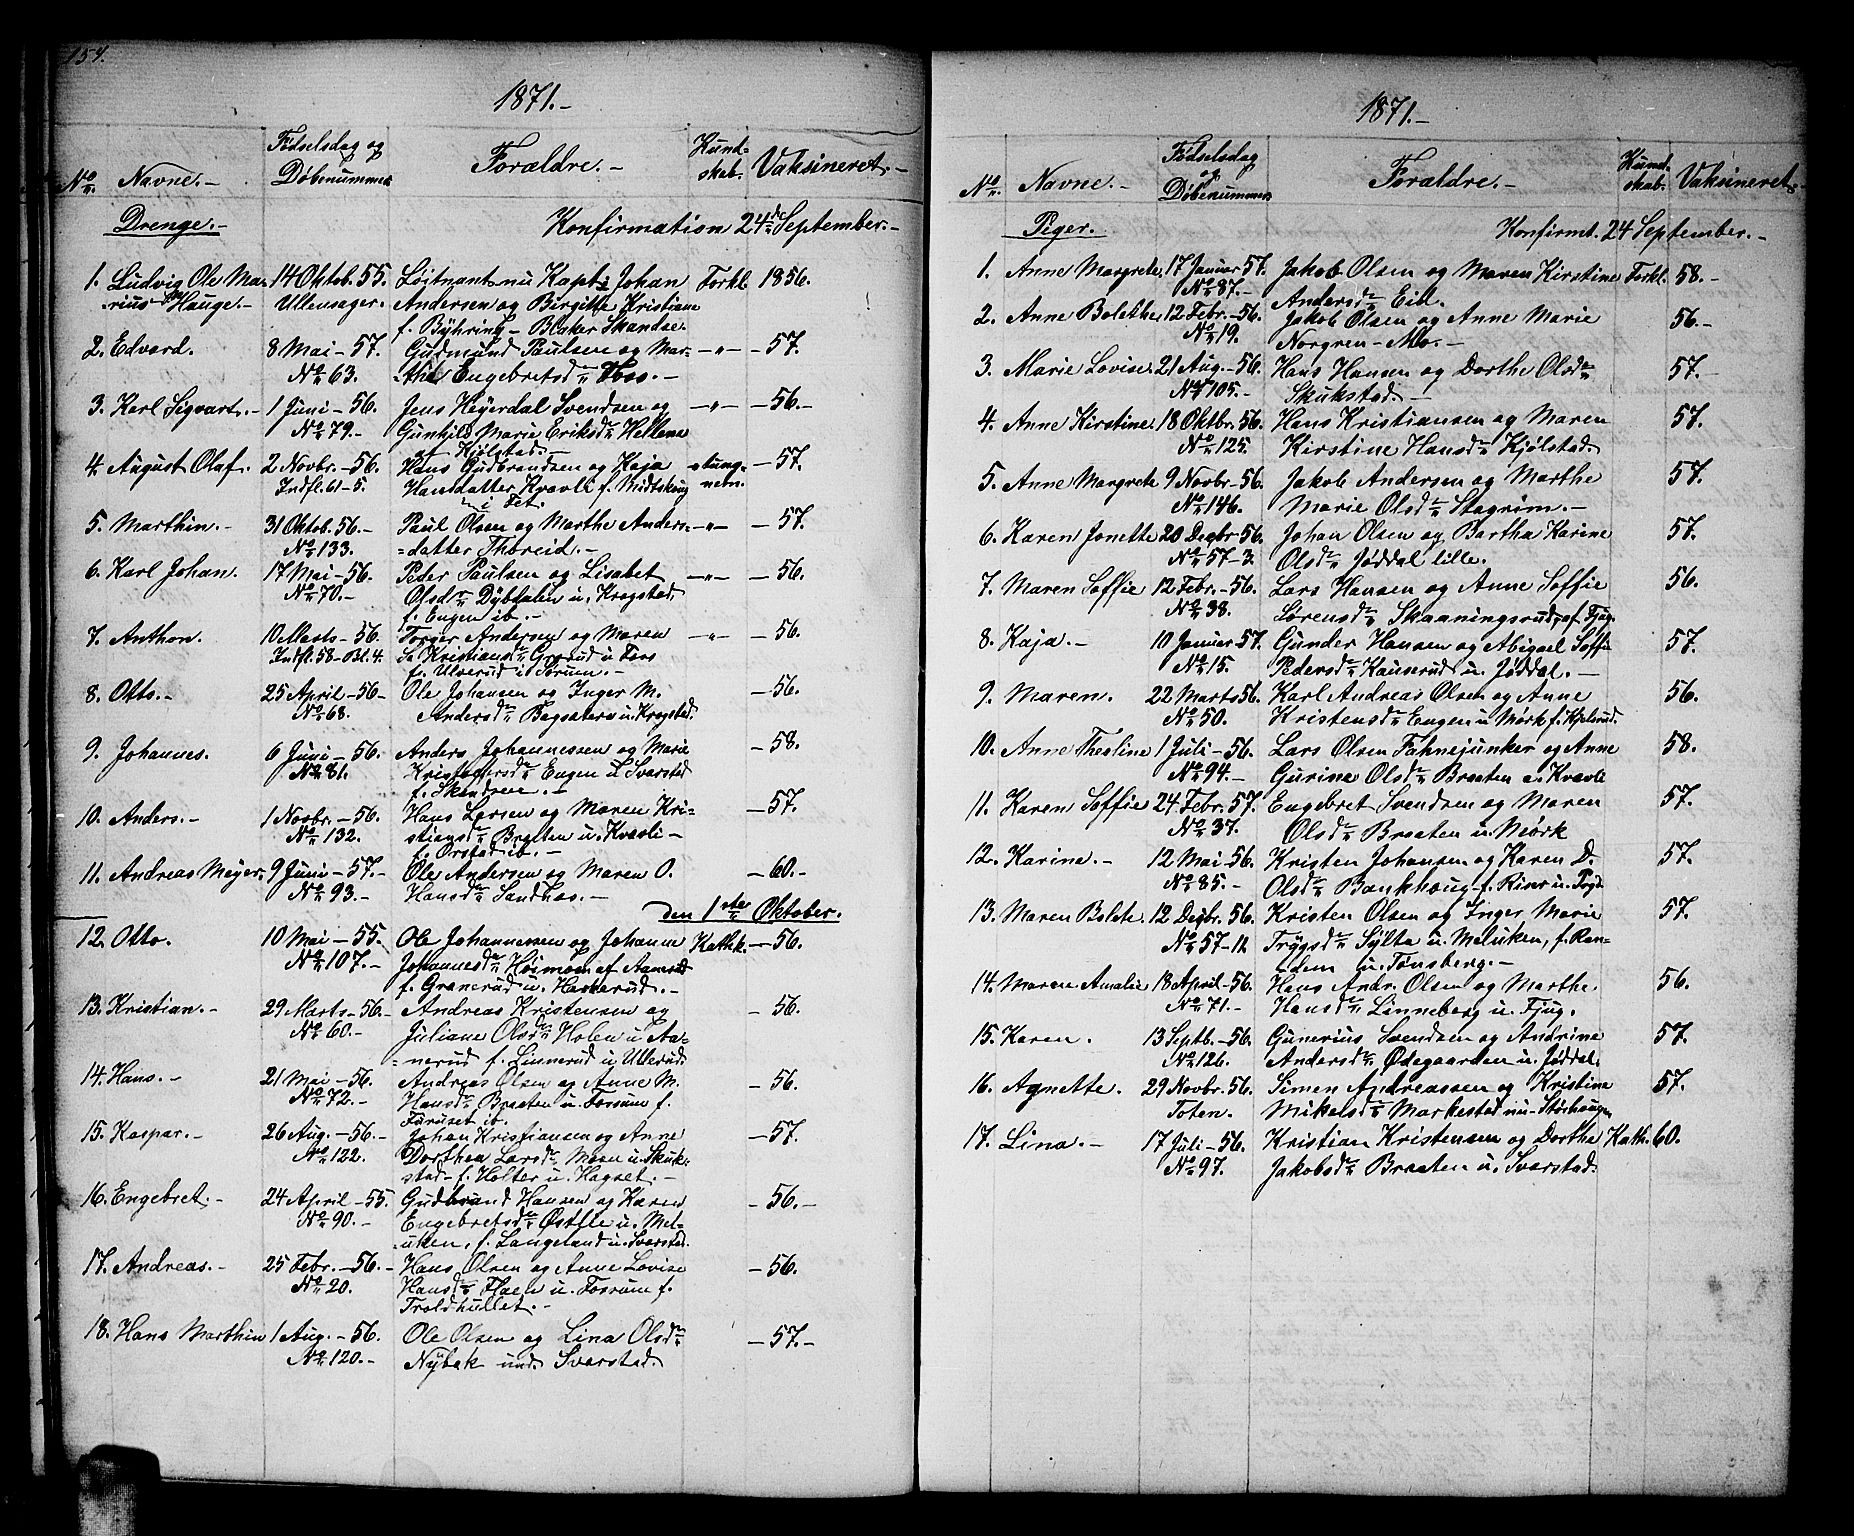 154.
1871.-
No. Navne.- Fødselsdag og Døbenummer Forældre.- Kund-skab. Vaksineret.-
Drenge.- Konfirmation 24de September.-
1. Ludvig Ole Ma- 14 Oktob. 55. Løjtnant nu Kapt. Johan Forkl. 1856.
rius Hauge.- Ullensager. Andersen og Birgitte Kristiane
f. Bÿhring - Blaker Skandse.
2. Edvard. 8 Mai - 57. Gudmund Paulsen og Mar- -"- - 57.
No. 63. the Engebretsdr. Foss.-
3. Karl Sigvart.- 1 Juni - 56. Jens Heyerdal Svendsen og -"- - 56.-
No. 79.- Gunhild Marie Eriksdr. Hellene
af Kjølstad.
4. August Olaf. 2 Novbr. - 56. Hans Gudbrandsen og Kaja - 57.
Indfl. 61-5. Hansdatter Kravli f. Midtskoug
i Fet.
5. Marthin.- 31 Oktob. 56.- Paul Olsen og Marthe Anders- -"- - 57.
No. 133. =datter Thoreid.-
6. Karl Johan. 17 Mai - 56. Peder Paulsen og Lisabet -"- - 56.
No. 70.- Olsdr. Dÿbdalen u. Krogstad,
f. Engen ib.-
7. Anthon. 10 Marts - 56. Torger Andersen og Maren -"- - 56.
Indfl. 58 - Bl. 4. Kristiansdr. Grorud u Foss
f. Ulverud i Sørum.-
8. Otto.- 25 April - 56- Ole Johansen og Inger M. - 56.
No. 68. Andersdr. Bagsætern u. Krogstad.
9. Johannes. 6 Juni - 56. Anders Johannessen og Marie - 58.
No. 81. Kristoffersdr. Engen u Svarstad
f. Skandsen.-
10. Anders.- 1 Novbr. - 56. Hans Larsen og Maren Kri- - 57.
No. 132. stiansdr. Braaten u. Kvavli -
f. Orstad ib.-
11. Andreas Meyer. 9 Juni - 57.- Ole Andersen og Maren O. - 60.-
No. 93.- Hansdr. Sandhas.-
den 1ste Oktober.
12. Otto. 10 Mai - 55. Ole Johannessen og Johanne Kathk. - 56.
No. 107.- Johannesdr. Høimoen af Aamodt
f. Granerud u. Haverud.-
13. Kristian.- 29 Marts - 56.- Andreas Kristensen og - 56.
No. 60.- Juliane Olsdr. Holen u Aa-
=nerud f. Linnerud u Ullerud.
14. Hans.- 21 Mai - 56. Andreas Olsen og Anne M. - 56.
No. 72.- Hansdr. Braaten u. Fossum f.
Furuset ib.
15. Kaspar.- 26 Aug. - 56- Johan Kristiansen og Anne - 57.
No. 122. Dorthea Larsdr. Moen u. Skuk-
stad - f. Holter u. Hogset.-
16. Engebret.- 24 April - 55. Gudbrand Hansen og Karen - 56.-
No. 90.- Engebretsdr. Østlie u. Mel-
=uken, f. Langeland u. Svarstad.
17. Andreas.- 25 Febr. - 56.- Hans Olsen og Anne Lovise - 56.
No. 20. Hansdr. Floen u. Fossum f.
Troldhullet.-
18. Hans Marthin 1 Aug. - 56. Ole Olsen og Lina Olsdr. - 57.-
No. 120.- Nÿbak und. Svarstad.
1871.-
No. Navne.- Fødselsdag og Døbenummer Forældre.- Kund-skab. Vaksineret.
Piger. Konfirmt. 24 September.-
1. Anne Margrete. 17 Januar 57. Jakob Olsen og Maren Kirstine Forkl. 58.-
No. 87.- Andersdr. Eid.
2. Anne Bolette 12 Febr. - 56. Jakob Olsen og Anne Marie 56.-
No. 19. Norgren - Mo.-
3. Marie Lovise. 21 Aug. - 56. Hans Hansen og Dorthe Olsdr. 57.-
No. 105. Skukstad.-
4. Anne Kirstine 18 Oktbr. 56. Hans Kristiansen og Maren 57.
No. 125. Kirstine Hansdr. Kjølstad.
5. Anne Margrete 9 Novbr - 56. Jakob Andersen og Marthe 57.
No. 146. Marie Olsdr. Stagrim.-
6. Karen Jonette 20 Decbr 56. Johan Olsen og Bartha Karine 57.
No. 57-3. Olsdr. Jøddal lille.
7. Maren Soffie 12 Febr. - 56. Lars Hansen og Anne Soffie 56.
No. 38. Lorensdr. Skaaningsrud, af Fjug.
8. Kaja.- 10 Januar 57. Gunder Hansen og Abigael Soffie 57.
No. 15. Pedersdr. Kauserud u. Jøddal.-
9. Maren. 22 Marts 56. Karl Andreas Olsen og Anne 56.
No. 50. Kristensdr. Engen u Mørk f. Kjelsrud.
10. Anne Theoline 1 Juli - 56. Lars Olsen Fahnejunker og Anne 58.
No. 94.- Gurine Olsdr. Braaten u. Kvavli
11. Karen Soffie 24 Febr. 57. Engebret Svendsen og Maren 57.
No. 37. Olsdr. Braaten u. Mørk
12. Karine.- 12 Mai - 56. Kristen Johansen og Karen D. 57.
No. 85.- Olsdr. Bankhaug f. Riser u.
13. Maren Bolete. 12 Decbr. 56. Kristen Olsen og Inger Marie 57.
No. 57-12 Trÿgsdr. Sÿlta u. Meluken, f. Ran-
dem u. Tønsberg.-
14. Maren Amalie 18 April - 56. Hans Andr. Olsen og Marthe. 56.
No. 71.- Hansdr. Linneberg u. Fjug.
15. Karen. 13 Septb. - 56. Gunerius Svendsen og Andrine 57.
No. 126. Andersdr. Ødegaarden u. Jøddal.
16. Agnette. 29 Novbr. 56. Simen Andreassen og Kristine 57.
Toten. Mikelsdr. Markestad nu Storhaugen
17. Lina.- 17 Juli - 56. Kristian Kristensen og Dortha Kath. 60.
No. 97. Jakobsdr. Braaten u. Svarstad.